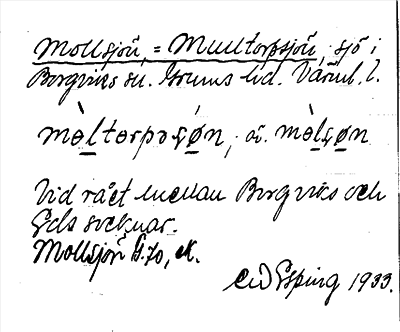 Mollsjön, = Multorpsjön, sjö i
Borgviks sn. Grums hd. Värml. l.
mòltorpəʂø̀n, äv. mòlʂøn
Vid rået mellan Borgviks och
Eds socknar.
Mollsjön G.70, ek.
Esping 1933.